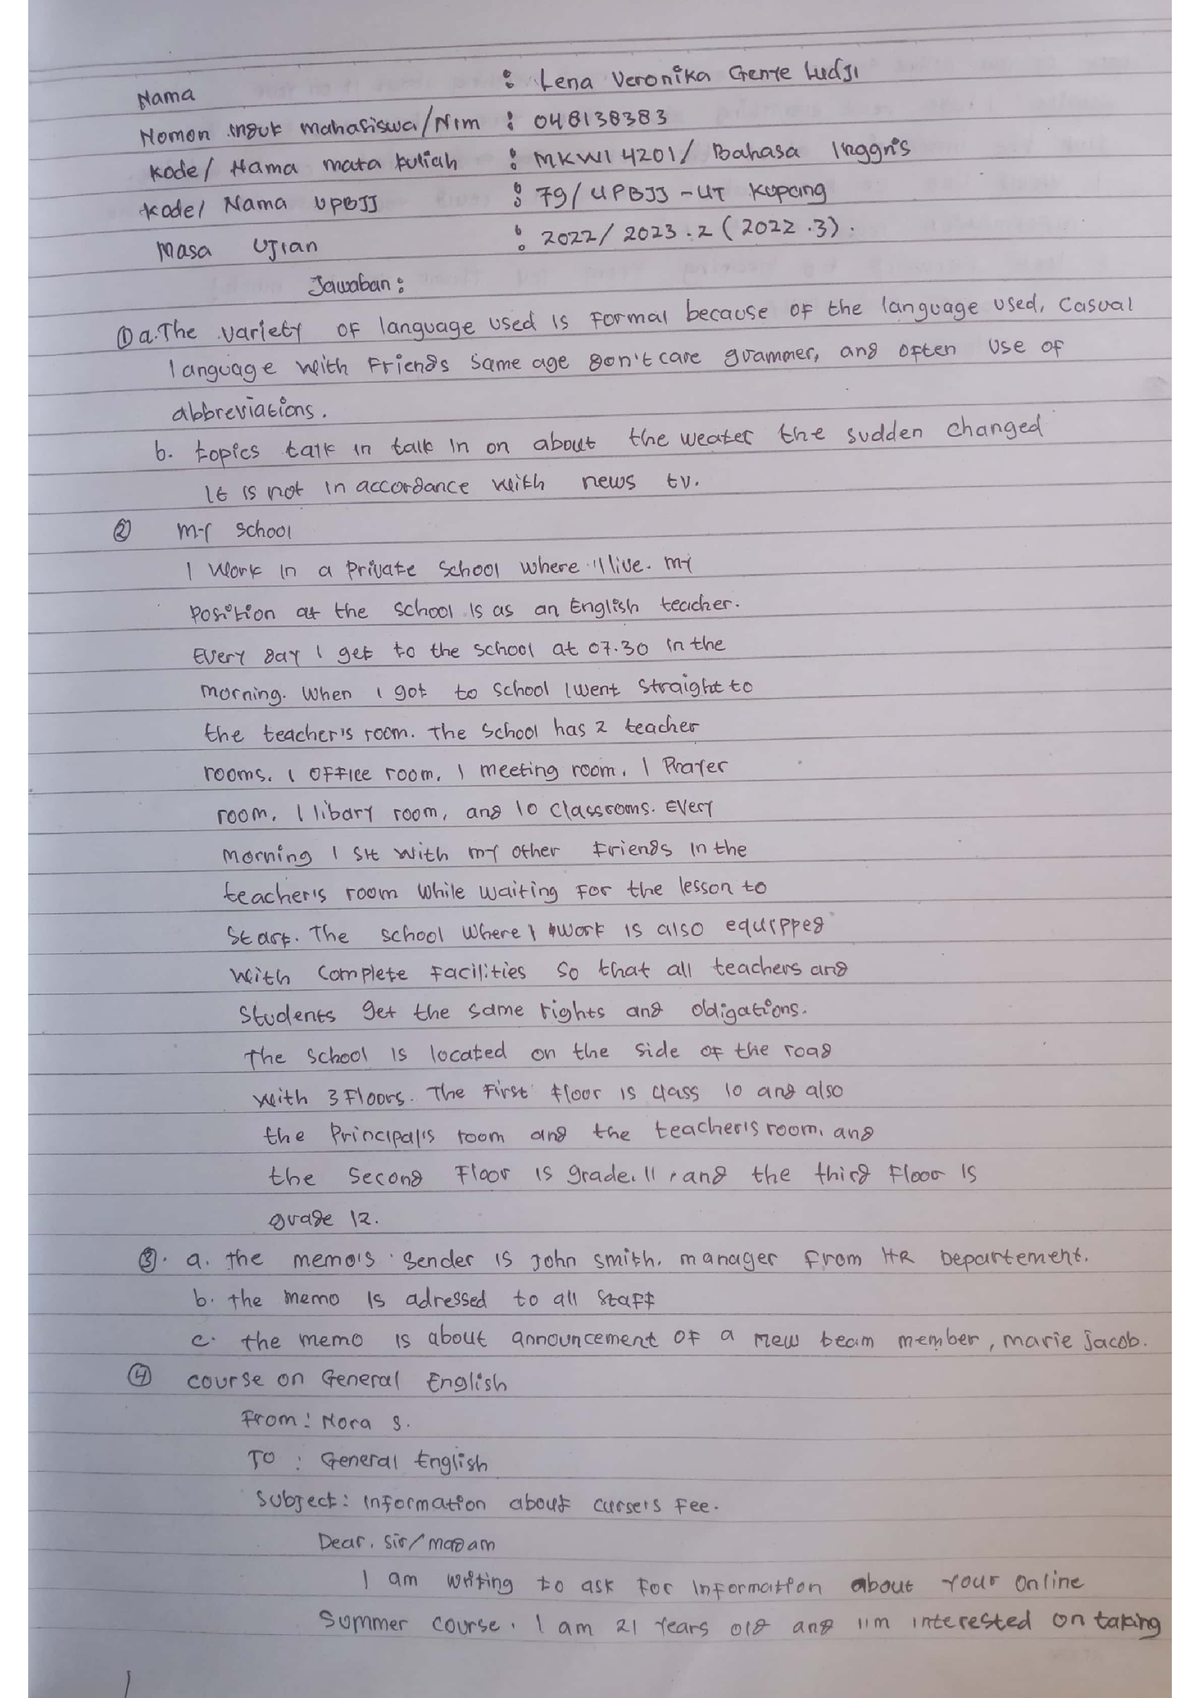 Nama : Lena Veronika Genre Ludji
Nomon induk mahasiswa/Nim : 048138383
kode/ Nama mata kuliah : MKWI 4201/ Bahasa Inggris
kode/ Nama UPBJJ : 79/ UPBJJ - UT Kupang
Masa Ujian : 2022/ 2023.2 (2022.3).
Jawaban :
① a. The variety of language used is formal because of the language used, Casual
language with Friends same age don't care grammer, and often use of
abbreviations.
b. topics talk in talk in on about the weater the sudden changed
It is not in accordance with news tv.
② my school
I work in a private school where I live. my
position at the school is as an English teacher.
Every day I get to the school at 07.30 in the
morning. When I got to school I went straight to
the teacher's room. The school has 2 teacher
rooms. 1 office room, 1 meeting room, 1 Prayer
room, 1 libary room, and 10 classrooms. Every
morning I sit with my other friends in the
teacher's room while waiting for the lesson to
start. The school where I work is also equipped
with complete facilities so that all teachers and
students get the same rights and obligations.
The school is located on the side of the road
with 3 floors. The first floor is class 10 and also
the Principal's room and the teacher's room, and
the second floor is grade. 11, and the third floor is
grade 12.
③. a. the memo's sender is John smith, manager from HR Departement.
b. the memo is adressed to all staff
c. the memo is about announcement of a new team member, marie jacob.
④ course on General English
From : Nora S.
To : General English
Subject : Information about curse's fee.
Dear. Sir/madam
I am writing to ask for information about your online
summer course. I am 21 years old and I'm interested on taking